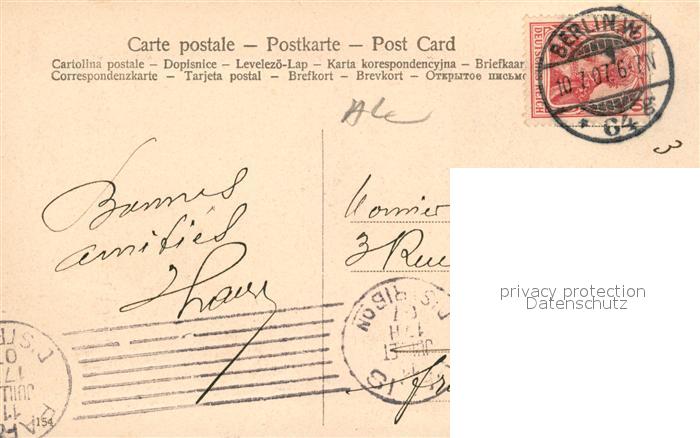 Carte postale – Postkarte – Post Card
Cartolina postale – Dopisnice – Levelező-Lap – Karta korespondencyjna – Briefkaar
Correspondenzkarte – Tarjeta postal – Brefkort – Brevkort – Открытое письмо
DEUTSCHES REICH
10
BERLIN. W.
10.7.07.6-7N
* 64 g
3
Bonnes
amitiés
3 Rue
privacy protection
Datenschutz
DISTRIBON
07
17H
JUILLET
11
IS
154